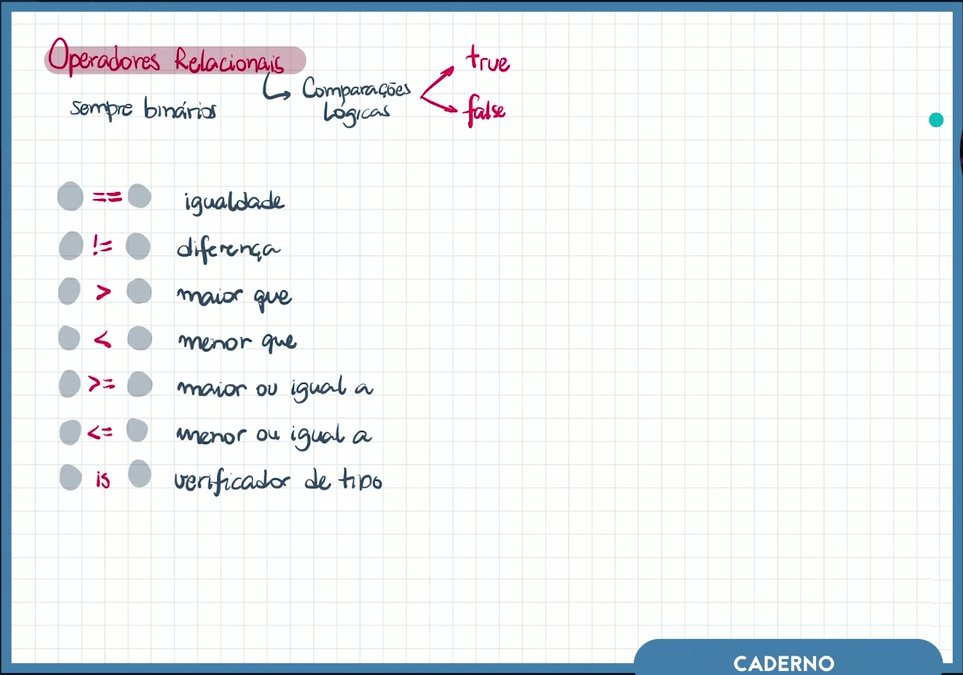 Operadores Relacionais
sempre binários
Comparações
Lógicas
true
false
== igualdade
!= diferença
> maior que
< menor que
>= maior ou igual a
<= menor ou igual a
is verificador de tipo
CADERNO